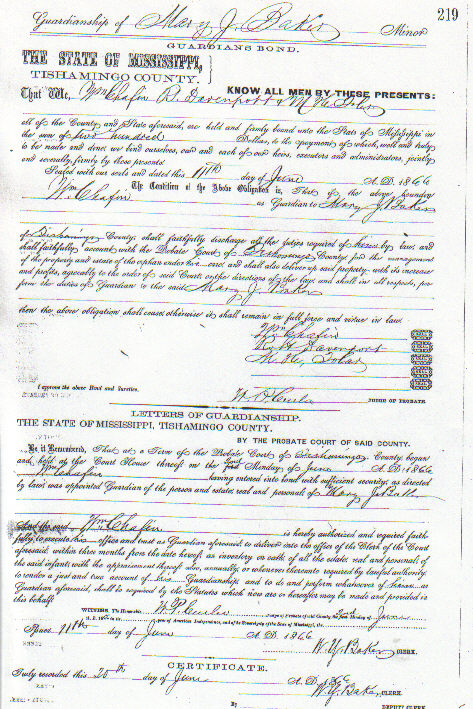 219
Guardianship of Mary J. Baker Minor
GUARDIANS BOND.
THE STATE OF MISSISSIPPI,
TISHAMINGO COUNTY.
KNOW ALL MEN BY THESE PRESENTS:
That We, Wm Chafin R. Davenport & M.
all of the County and State aforesaid, are held and firmly bound unto the State of Mississippi in
the sum of five hundred Dollars, to the payment of which, well and truly
to be made and done, we bind ourselves, our and each of our heirs, executors and administrators, jointly
and severally, firmly by these presents.
Sealed with our seals and dated this 11th day of June A. D. 1866
The Condition of the Above Obligation is, That if the above bounden
Wm Chafin as Guardian to Mary J Baker
of Tishamingo County, shall faithfully discharge all the duties required of by law, and
shall faithfully account with the Probate Court of Tishamingo County, for the management
of the property and estate of the orphan under care, and shall also deliver up said property, with its increase
and profits, agreeably to the order of said Court, or the directions of the law, and shall in all respects, per
form the duties of Guardian to the said Mary J. Baker
then the above obligation shall cease, otherwise it shall remain in full force and virtue in law.
Wm Chafin
Davenport
M.
I approve the above Bond and Sureties.
JUDGE OF PROBATE
LETTERS OF GUARDIANSHIP.
THE STATE OF MISSISSIPPI, TISHAMINGO COUNTY.
BY THE PROBATE COURT OF SAID COUNTY.
Be it Remembered, That at a Term of the Probate Court of Tishamingo County, began
and held at the Court House thereof on the Monday of June A. D. 1866
Wm Chafin having entered into bond with sufficient security, as directed
by law, was appointed Guardian of the person and estate, real and personal, of Mary J. Baker
And the said Wm Chafin is hereby authorized and required faith
fully to execute his office and trust as Guardian aforesaid; to deliver into the office of the Clerk of the Court
aforesaid, within three months from the date hereof, an inventory on oath of all the estate, real and personal, of
the said infants, with the appraisement thereof; also, annually, or whenever thereunto required by lawful authority,
to render a just and true account of his Guardianship, and to do and perform whatsoever of as
Guardian aforesaid, shall be required by the Statutes which now are or hereafter may be made and provided in
this behalf.
WITNESS, The Honorable Judge of Probate of said County, the Monday of June
A. D. 18 year of American Independence, and of the Sovereignty of the State of Mississippi, the
Issued 11th day of June A. D. 1866
W. Y. Baker CLERK.
CERTIFICATE.
Truly recorded this 20th day of June A. D. 1866
W. Y. Baker, CLERK.
By DEPUTY CLERK